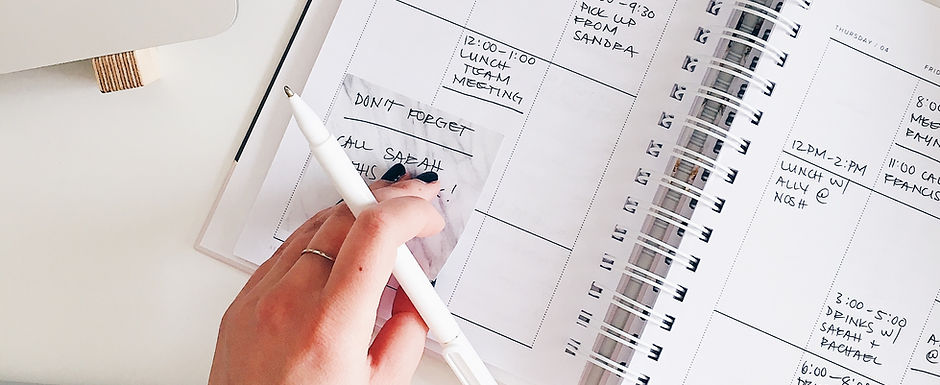 9:30
PICK UP
FROM
SANDRA
12:00-1:00
LUNCH
TEAM
MEETING
DON'T FORGET
CALL SARAH
THIS
!
THURSDAY / 04
12PM-2PM
LUNCH W/
ALLY @
NOSH
3:00-5:00
DRINKS W/
SARAH +
RACHAEL
6:00-8:
FRI
8:0
MEE
11:00 CAL
FRANCIS